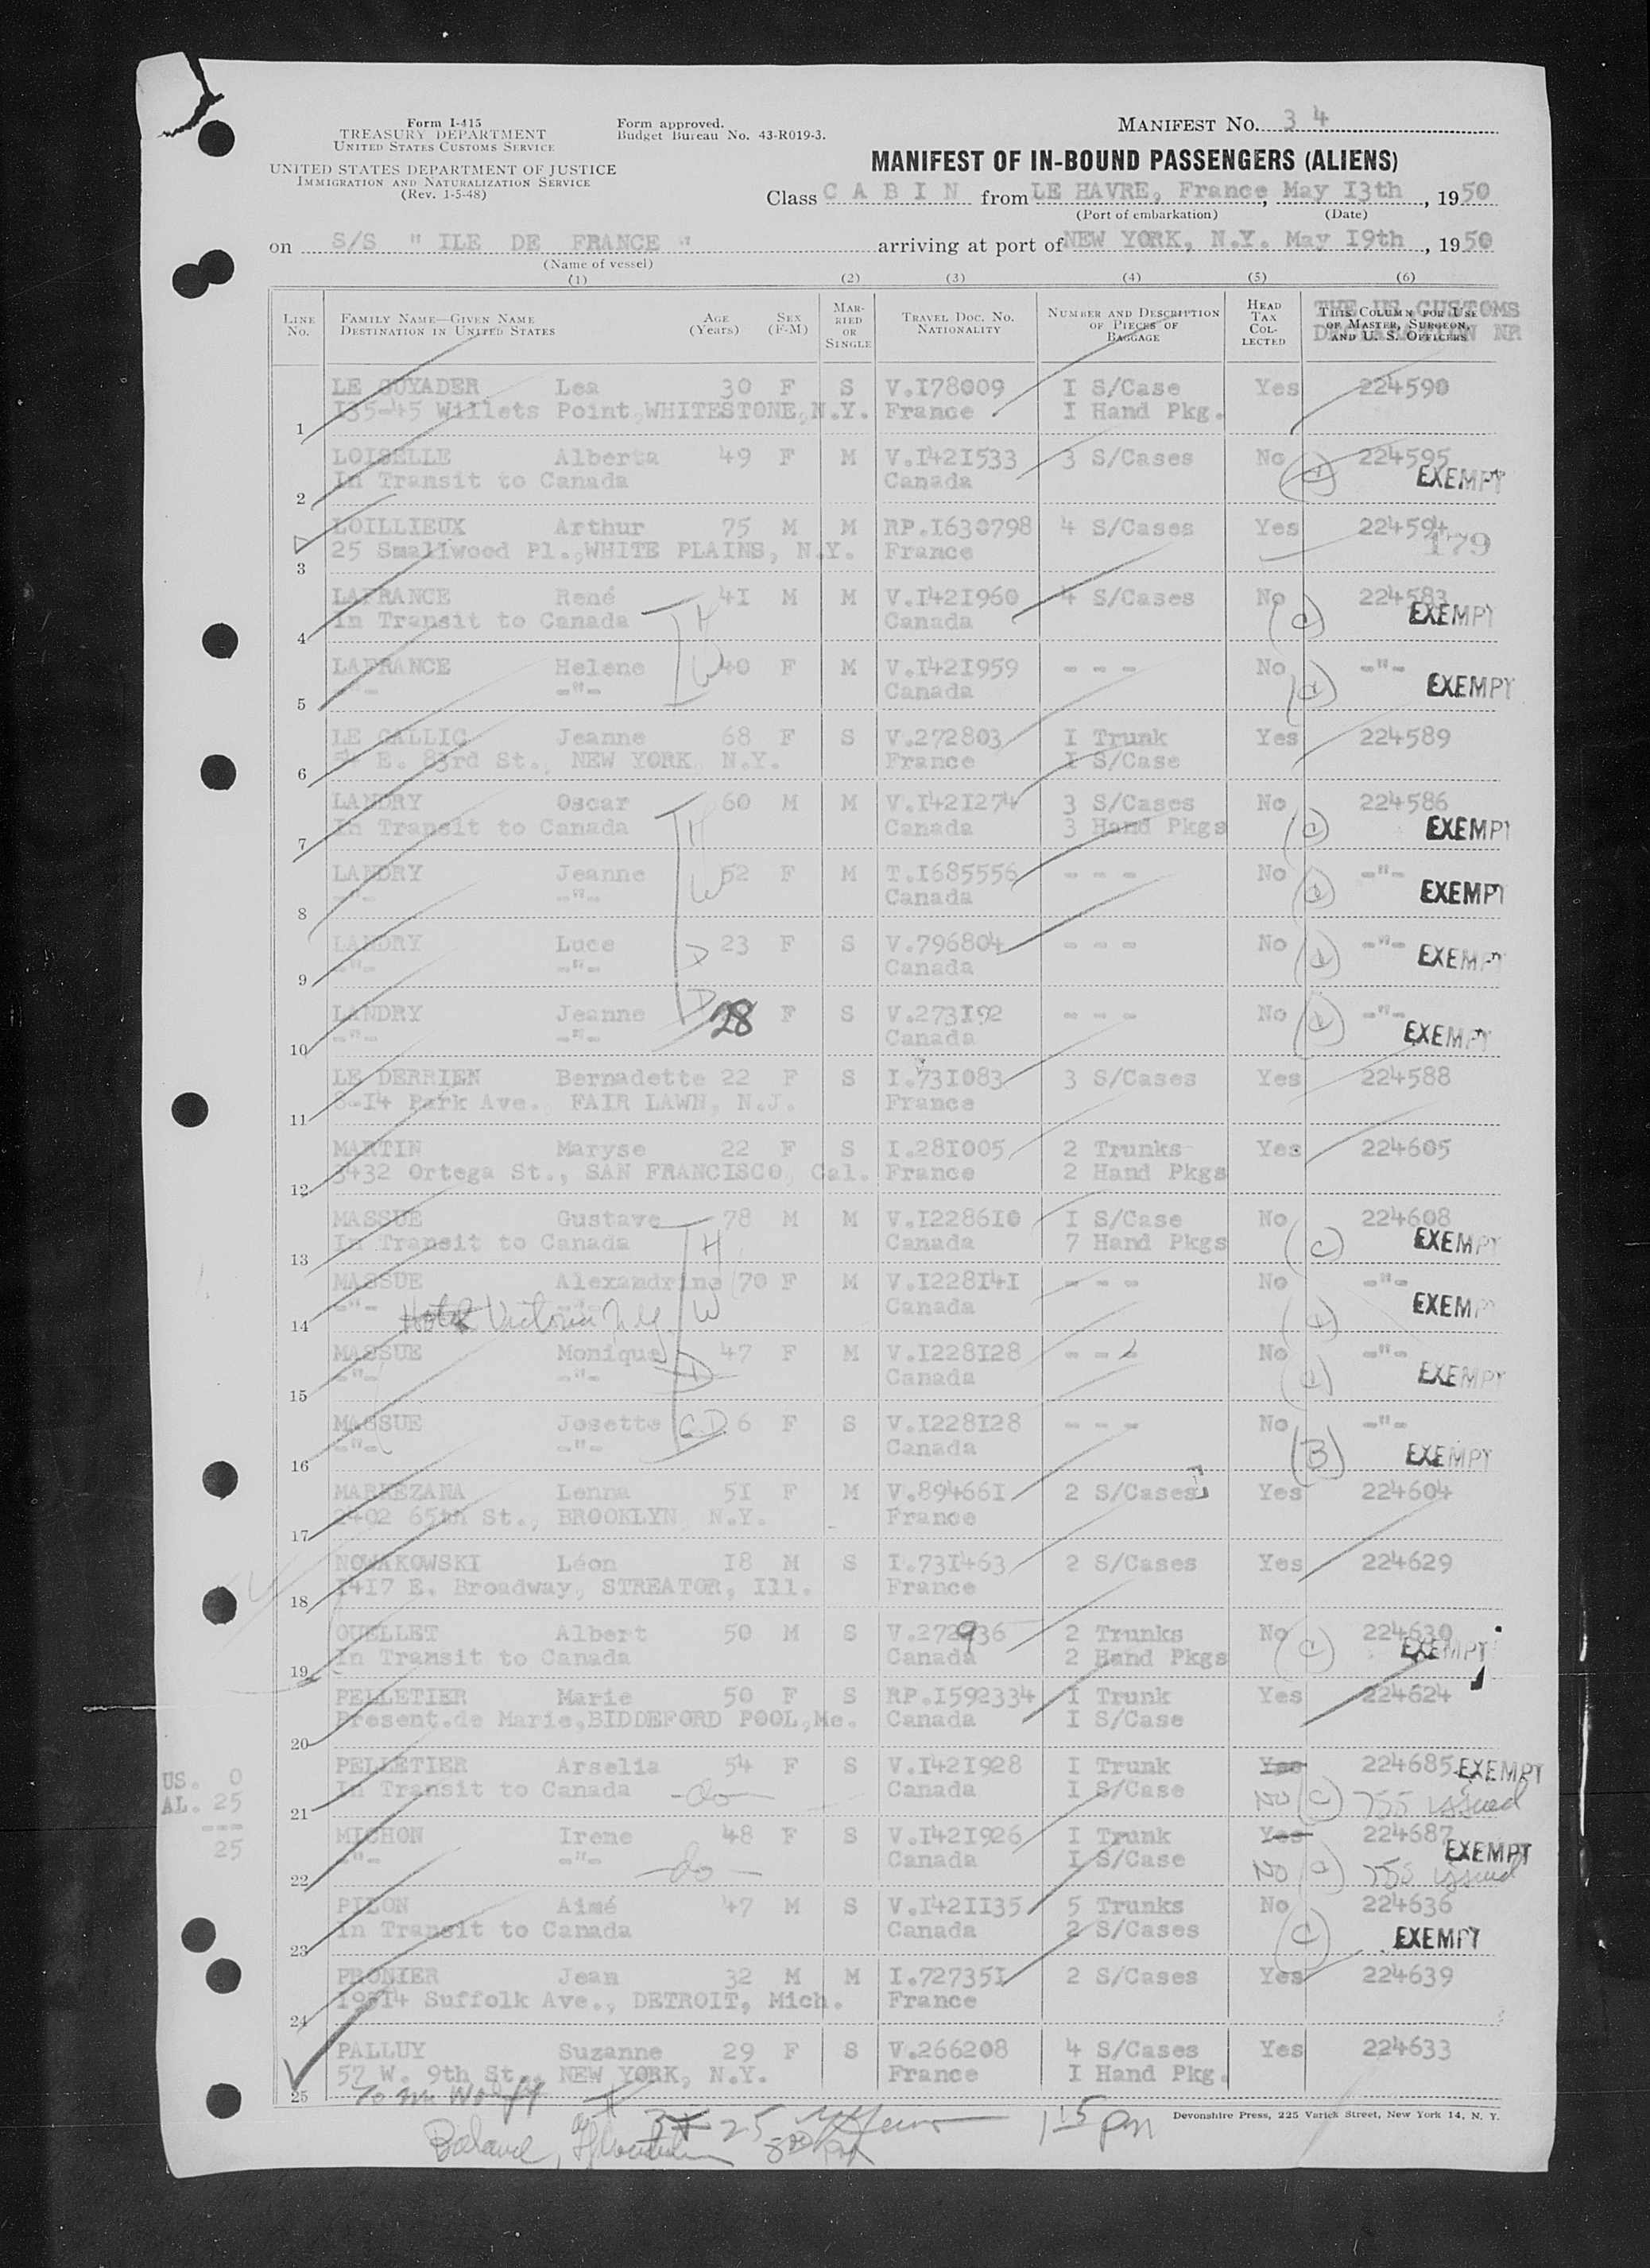 Form I-415
TREASURY DEPARTMENT
UNITED STATES CUSTOMS SERVICE
UNITED STATES DEPARTMENT OF JUSTICE
IMMIGRATION AND NATURALIZATION SERVICE
(Rev. 1-5-48)
Form approved.
Budget Bureau No. 43-R019-3.
MANIFEST NO. 34
MANIFEST OF IN-BOUND PASSENGERS (ALIENS)
Class C A B I N from LE HAVRE, France, May I3th, 1950
(Port of embarkation) (Date)
on S/S " ILE DE FRANCE " arriving at port of NEW YORK, N.Y. May I9th, 1950
(Name of vessel)
(1) (2) (3) (4) (5) (6)
LINE NO. FAMILY NAME—GIVEN NAME DESTINATION IN UNITED STATES AGE (Years) SEX (F-M) MARRIED OR SINGLE TRAVEL DOC. NO. NATIONALITY NUMBER AND DESCRIPTION OF PIECES OF BAGGAGE HEAD TAX COLLECTED THIS COLUMN FOR USE OF MASTER, SURGEON, AND U. S. OFFICERS
THE US CUSTOMS DECLARATION NR
LE GUYADER Lea 30 F S V.I78009 I S/Case Yes 224590
1 I35-45 Willets Point, WHITESTONE, N.Y. France I Hand Pkg.
LOISELLE Alberta 49 F M V.I42I533 3 S/Cases No 224595
2 In Transit to Canada Canada EXEMPT
LOILLIEUX Arthur 75 M M RP.I630798 4 S/Cases Yes 224594
3 25 Smallwood Pl., WHITE PLAINS, N.Y. France 179
LAFRANCE René 4I M M V.I42I960 4 S/Cases No 224583
4 In Transit to Canada H Canada (c) EXEMPT
LAFRANCE Helene W 40 F M V.I42I959 - - - No -"-
5 -"- -"- Canada EXEMPT
LE GALLIC Jeanne 68 F S V.272803 I Trunk Yes 224589
6 54 E. 83rd St., NEW YORK, N.Y. France I S/Case
LANDRY Oscar 60 M M V.I42I274 3 S/Cases No 224586
7 In Transit to Canada H Canada 3 Hand Pkgs EXEMPT
LANDRY Jeanne W 52 F M T.I685556 - - - No -"-
8 -"- -"- Canada EXEMPT
LANDRY Luce D 23 F S V.796804 - - - No -"-
9 -"- -"- Canada EXEMPT
LANDRY Jeanne D 28 F S V.273I92 - - - No -"-
10 -"- -"- Canada EXEMPT
LE DERRIEN Bernadette 22 F S I.73I083 3 S/Cases Yes 224588
11 8-I4 Park Ave., FAIR LAWN, N.J. France
MARTIN Maryse 22 F S I.28I005 2 Trunks Yes 224605
12 3432 Ortega St., SAN FRANCISCO, Cal. France 2 Hand Pkgs
MASSUE Gustave 78 M M V.I2286I0 I S/Case No 224608
13 In Transit to Canada H Canada 7 Hand Pkgs (c) EXEMPT
MASSUE Alexandrine 70 F M V.I228I4I - - - No -"-
14 -"- Hotel Victoria N.Y. W Canada EXEMPT
MASSUE Monique 47 F M V.I228I28 - - - No -"-
15 -"- -"- D Canada EXEMPT
MASSUE Josette GD 6 F S V.I228I28 - - - No -"-
16 -"- -"- Canada (B) EXEMPT
MARKEZANA Lenna 5I F M V.89466I 2 S/Cases Yes 224604
17 2402 65th St., BROOKLYN, N.Y. France
NOWAKOWSKI Léon I8 M S I.73I463 2 S/Cases Yes 224629
18 I4I7 E. Broadway, STREATOR, Ill. France
OUELLET Albert 50 M S V.272936 2 Trunks No 224630
19 In Transit to Canada Canada 2 Hand Pkgs (c) EXEMPT
PELLETIER Marie 50 F S RP.I592334 I Trunk Yes 224624
20 Present.de Marie, BIDDEFORD POOL, Me. Canada I S/Case
PELLETIER Arselia 54 F S V.I42I928 I Trunk Yes 224685 EXEMPT
21 In Transit to Canada -do- Canada I S/Case No (c) 755 issued
US. 0
AL. 25
---
25
MICHON Irene 48 F S V.I42I926 I Trunk Yes 224687 EXEMPT
22 -"- -"- -do- Canada I S/Case No 755 issued
PILON Aimé 47 M S V.I42II35 5 Trunks No 224636
23 In Transit to Canada Canada 2 S/Cases (c) EXEMPT
PRONIER Jean 32 M M I.72735I 2 S/Cases Yes 224639
24 I95I4 Suffolk Ave., DETROIT, Mich. France
PALLUY Suzanne 29 F S V.266208 4 S/Cases Yes 224633
25 57 W. 9th St., NEW YORK, N.Y. France I Hand Pkg.
Devonshire Press, 225 Varick Street, New York 14, N. Y.
To Mr Wolff
25 1 15 pm
Balance,